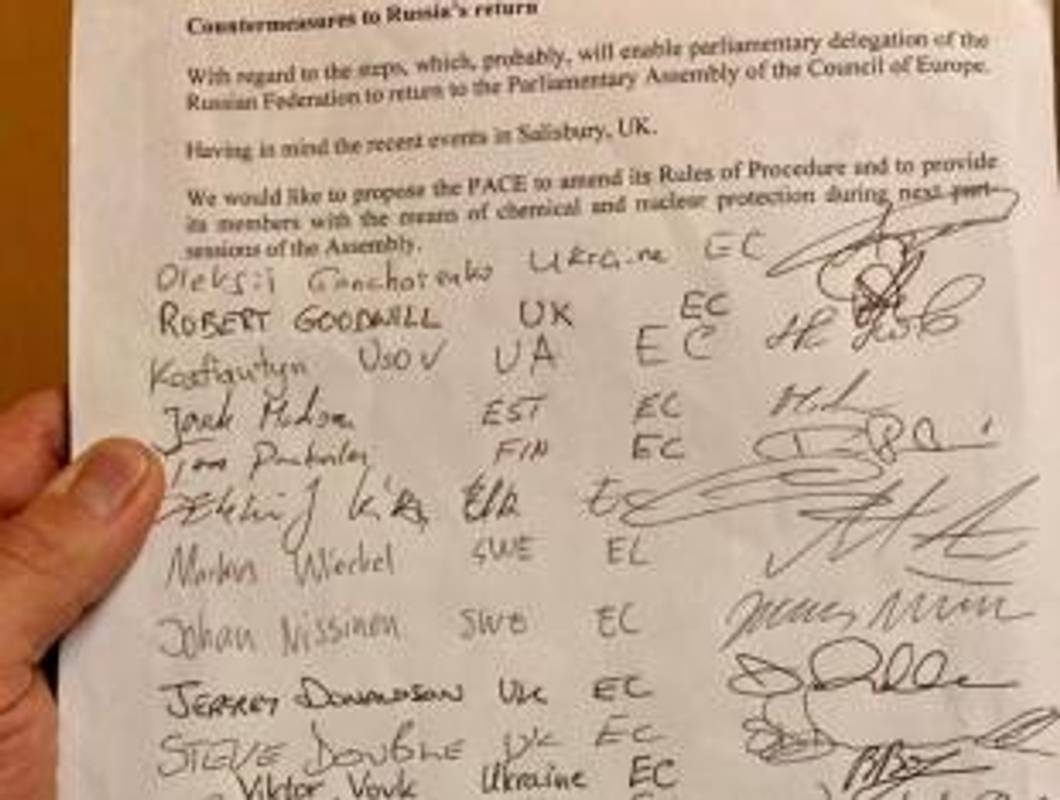 Countermeasures to Russia's return
With regard to the steps, which, probably, will enable parliamentary delegation of the
Russian Federation to return to the Parliamentary Assembly of the Council of Europe.
Having in mind the recent events in Salisbury, UK.
We would like to propose the PACE to amend its Rules of Procedure and to provide
its members with the means of chemical and nuclear protection during next part-
sessions of the Assembly.
Oleksii Goncharenko Ukraine EC
ROBERT GOODWILL UK EC
Usov UA EC
EST EC
FIN EC
EC
SWE EC
Johan Nissinen SWE EC
JEFFREY DONALDSON UK EC
STEVE DOUBLE UK EC
Viktor Vovk Ukraine EC